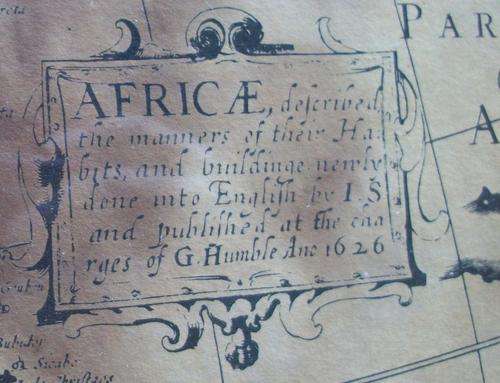 PAR
A
AFRICÆ, described,
the manners of their Ha
bits, and buildinge newly
done into English by I. S
and published at the cha
rges of G. Humble Ano 1626